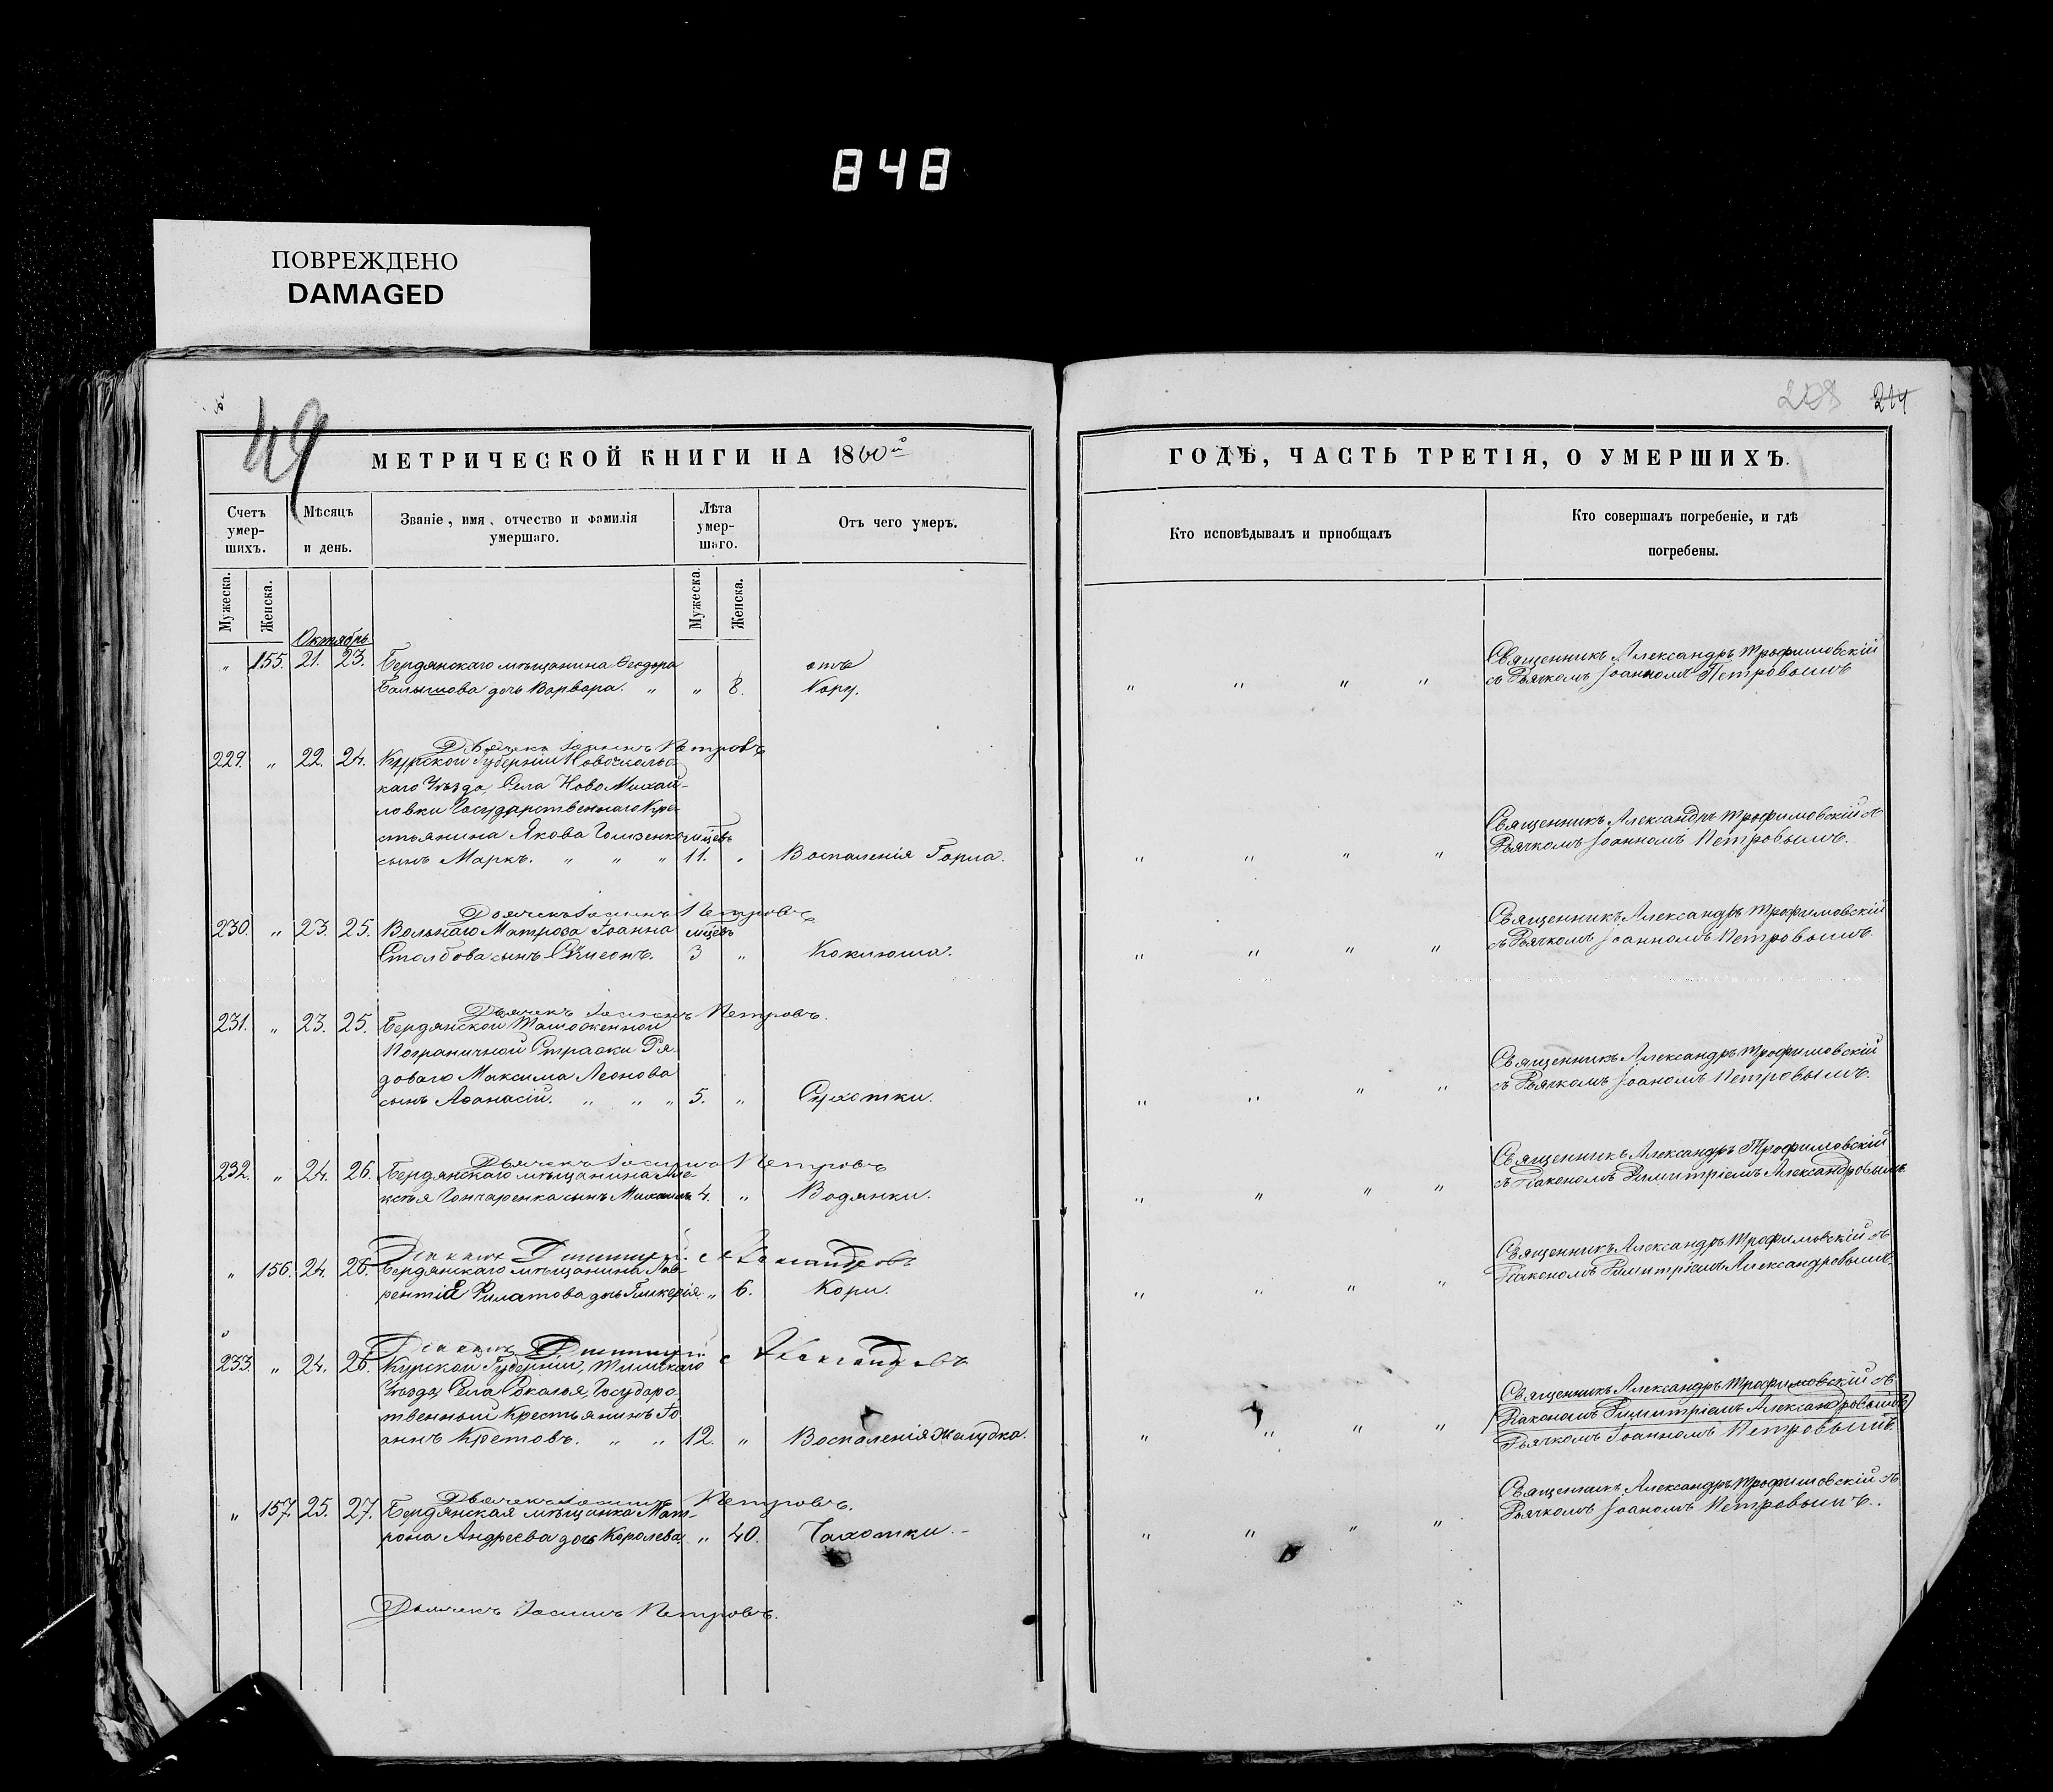 848
ПОВРЕЖДЕНО
DAMAGED
49
208 214
МЕТРИЧЕСКОЙ КНИГИ НА 1860й
ГОДѢ, ЧАСТЬ ТРЕТІЯ, О УМЕРШИХЪ.
Счетъ умер-шихъ.
Мѣсяцъ и день.
Званіе, имя, отчество и фамилія умершаго.
Лѣта умер-шаго.
Отъ чего умеръ.
Кто исповѣдывалъ и пріобщалъ
Кто совершалъ погребеніе, и гдѣ погребены.
Мужеска. Женска. Мужеска. Женска.
Октябрь
" 155. 21. 23. Бердянскаго мѣщанина Ѳеодора отъ
дочь Варвара. " " 8. Кору. " " " "
Священникъ Александръ Трофимовскій
съ Дьячкомъ Іоанномъ Петровымъ
Дьячекъ Іоаннъ Петровъ
229. " 22. 24. Курской Губерніи Новооскольс
каго Уѣзда, Села Ново Михай-
ловки Государственнаго Кре-
стьянина Якова мцевъ
сынъ Маркъ. " " " 11. " Воспаленія Горла. " " " "
Священникъ Александръ Трофимовскій съ
Дьячкомъ Іоанномъ Петровымъ.
Дьячекъ Іоаннъ Петровъ
230. " 23. 25. Вольнаго Матроса Іоанна мцевъ
Столбова сынъ Симеонъ. 3 " Коклюша. " " " "
Священникъ Александръ Трофимовскій
съ Дьячкомъ Іоанномъ Петровымъ.
Дьячекъ Іоаннъ Петровъ.
231. " 23. 25. Бердянской Таможенной
Пограничной Стражи Ря-
доваго Максима Леонова
сынъ Аѳанасій. " " " 5. " Сухотки. " " " "
Священникъ Александръ Трофимовскій
съ Дьячкомъ Іоаномъ Петровымъ.
Дьячекъ Іоаннъ Петровъ
232. " 24. 26. Бердянскаго мѣщанина Але-
ксѣя Гончаренка сынъ Михаилъ 4. " Водянки. " " " "
Священникъ Александръ Трофимовскій
съ Діакономъ Димитріемъ Александровымъ
Діаконъ Димитрій Александровъ
" 156. 24. 26. Бердянскаго мѣщанина Лав-
рентія Филатова дочь Гликерія. " 6. Кори. " " " "
Священникъ Александръ Трофимовскій съ
Діакономъ Димитріемъ Александровымъ.
Діаконъ Димитрій Александровъ
233. " 24. 26. Курской Губерніи, Тимскаго
Уѣзда, Села Соколья, Государс
твенный Крестьянинъ Іо
аннъ Кретовъ. " " 12. " Воспаленія Желудка. " " " "
Священникъ Александръ Трофимовскій съ
Діакономъ Димитріемъ Александровымъ
Дьячкомъ Іоанномъ Петровымъ.
Дьячекъ Іоаннъ Петровъ.
" 157. 25. 27. Бердянская мѣщанка Мат-
рона Андреева дочь Королева, " 40. Чахотки. " " " "
Священникъ Александръ Трофимовскій съ
Дьячкомъ Іоаномъ Петровымъ.
Дьячекъ Іоаннъ Петровъ.